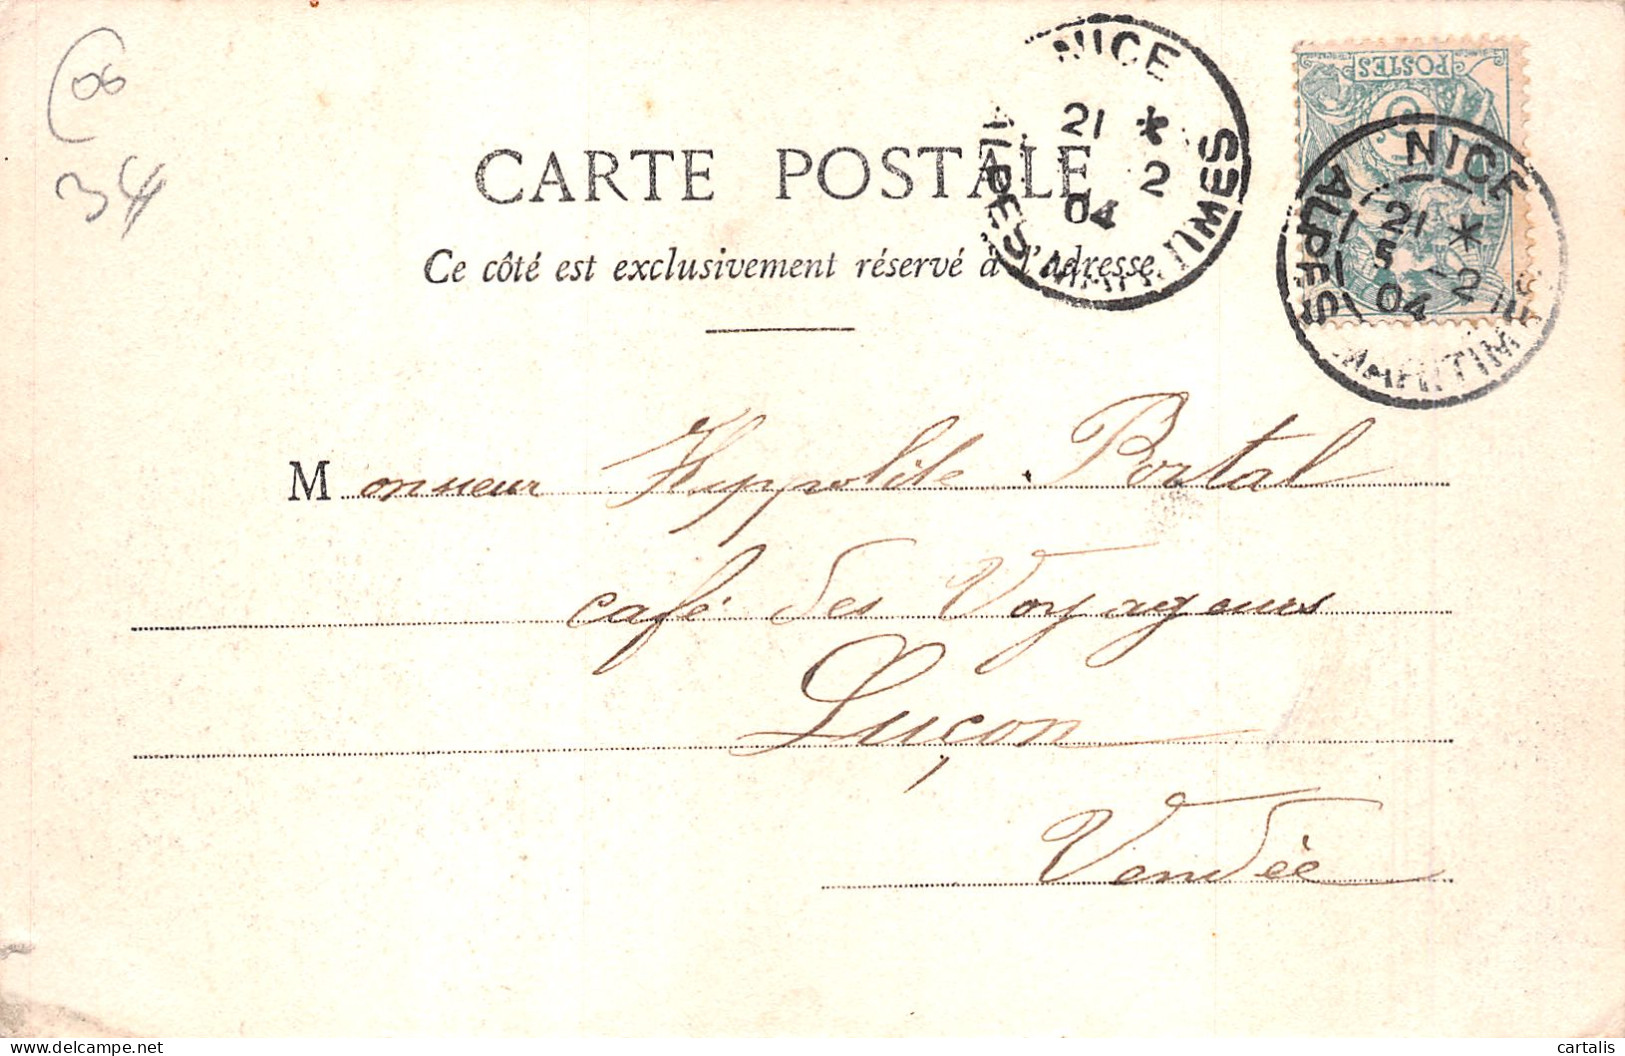 06
34
NICE
21 *
2
04
ALPES MARITIMES
POSTES
5
NICE
21 *
5 -2
04
ALPES MARITIMES
CARTE POSTALE
Ce côté est exclusivement réservé à l'adresse.
Monsieur Hyppolite Portal
café des Voyageurs
Luçon
Vendée
cartalis